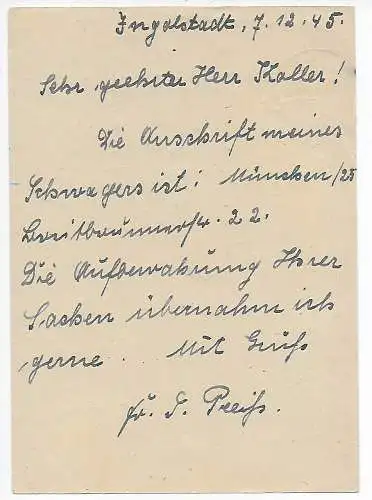 Ingolstadt, 7.12.45.
Sehr geehrter Herr Koller!
Die Anschrift meines
Schwagers ist: München/25
Breitbrunnerstr. 22.
Die Aufbewahrung Ihrer
Sachen übernahm ich
gerne. Mit Gruß
Fr. J. Preiß.